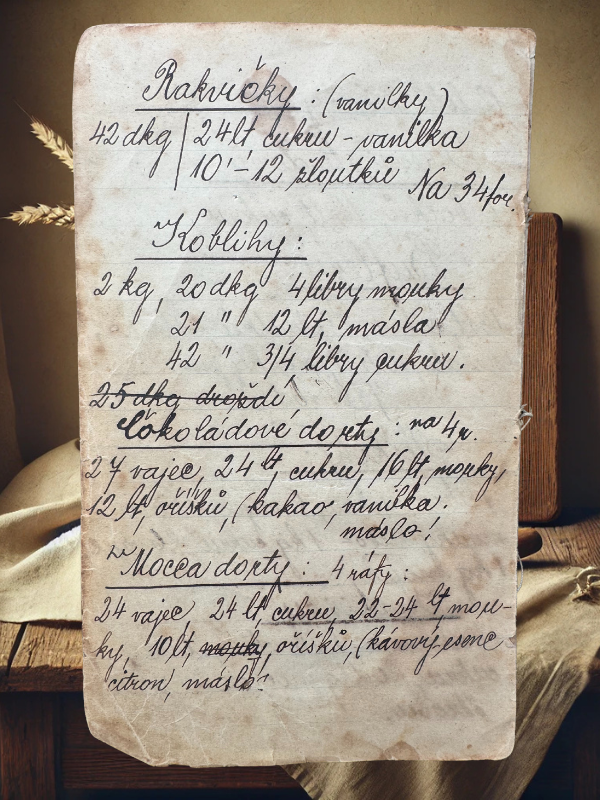 Rakvičky : (vanilky)
42 dkg | 24 lt, cukru - vanilka
10 - 12 žloutků
Na 34 for.
Koblihy :
2 kg, 20 dkg 4 libry mouky
21 " 12 lt, másla
42 " 3/4 libry cukru.
25 dkg droždí
Čokoládové dorty : na 4 r.
27 vajec, 24 lt, cukru, 16 lt, mouky,
12 lt, oříšků, (kakao, vanilka.
máslo!
Mocca dorty : 4 ráfy :
24 vajec, 24 lt, cukru, 22-24 lt mou-
ky, 10 lt, mouky, oříšků, (kávový esenc
citron, máslo!